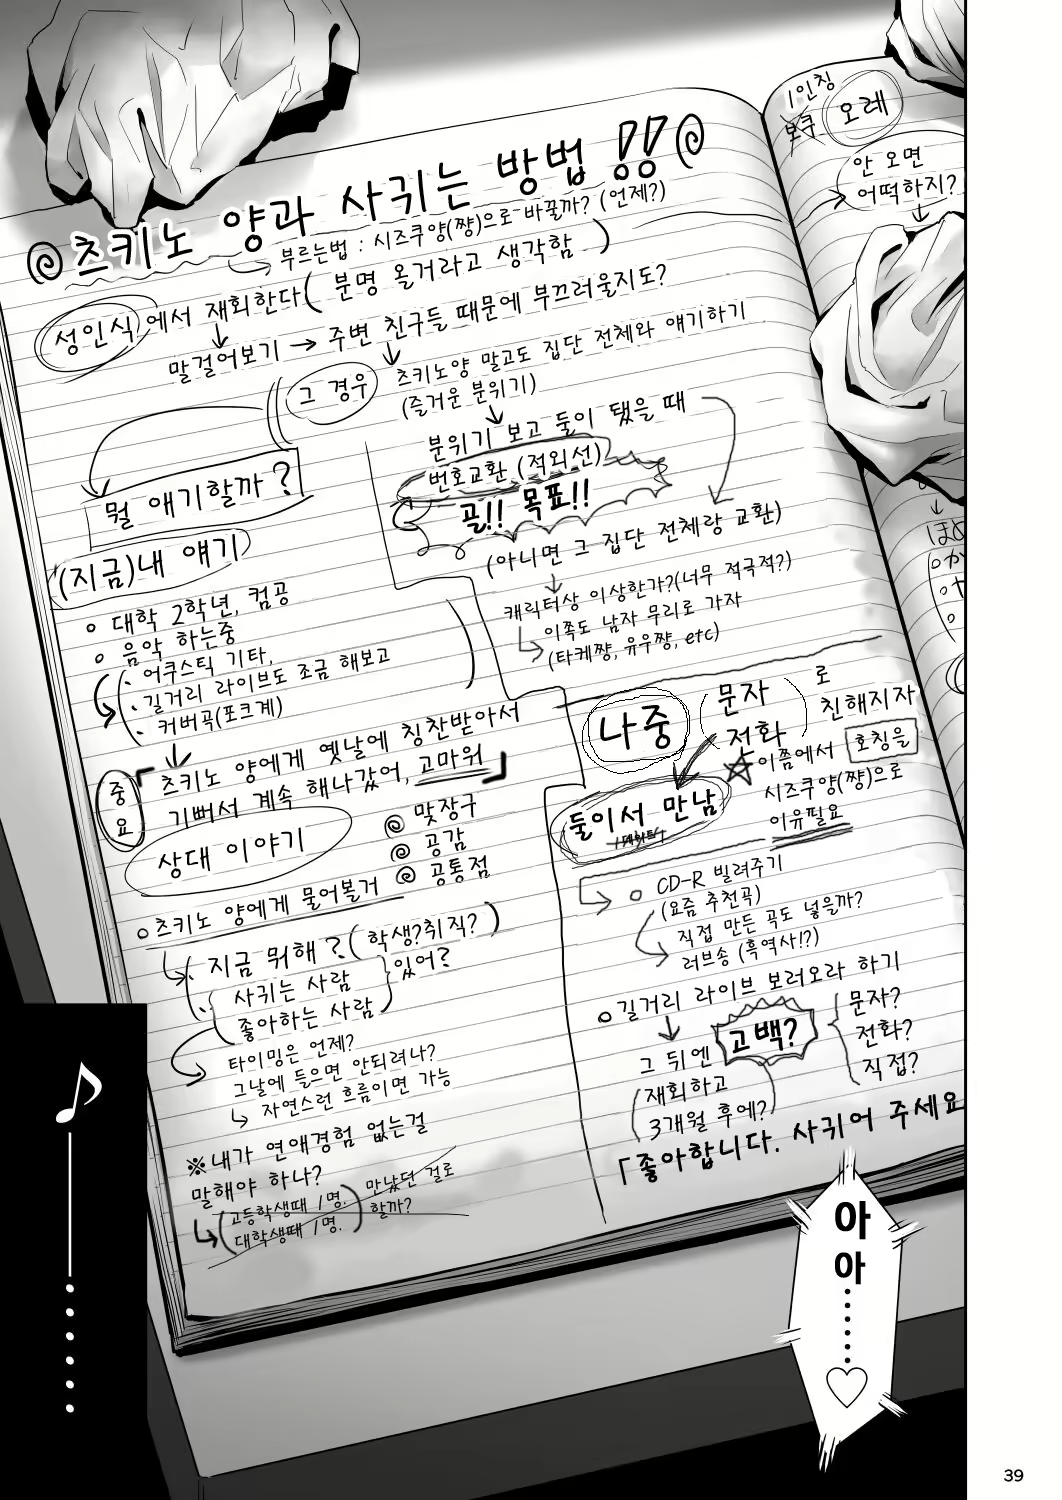 ◎츠키노 양과 사귀는 방법!!◎
부르는법 : 시즈쿠양(쨩)으로 바꿀까? (언제?)
성인식에서 재회한다(분명 올거라고 생각함)
말걸어보기 → 주변 친구들 때문에 부끄러울지도?
그 경우
츠키노양 말고도 집단 전체와 얘기하기
(즐거운 분위기)
분위기 보고 둘이 됐을 때
번호교환 (적외선)
골!! 목표!!
(아니면 그 집단 전체랑 교환)
캐릭터상 이상한가?(너무 적극적?)
이쪽도 남자 무리로 가자
(타케쨩, 유우쨩, etc)
뭘 얘기할까?
(지금)내 얘기
○ 대학 2학년, 컴공
○ 음악 하는중
· 어쿠스틱 기타,
· 길거리 라이브도 조금 해보고
· 커버곡(포크계)
중요
「츠키노 양에게 옛날에 칭찬받아서
기뻐서 계속 해나갔어, 고마워」
상대 이야기
◎ 맞장구
◎ 공감
◎ 공통점
○츠키노 양에게 물어볼거
· 지금 뭐해? (학생?취직?)
· 사귀는 사람
좋아하는 사람
있어?
타이밍은 언제?
그날에 들으면 안되려나?
자연스런 흐름이면 가능
※내가 연애경험 없는걸
말해야 하나?
(고등학생때 1명.
대학생때 1명.)
만났던 걸로
할까?
나중
(문자
전화)
로
친해지자
☆이쯤에서 호칭을
시즈쿠양(쨩)으로
이유필요
둘이서 만남
○ CD-R 빌려주기
(요즘 추천곡)
직접 만든 곡도 넣을까?
러브송 (흑역사!?)
○길거리 라이브 보러오라 하기
그 뒤엔
고백?
문자?
전화?
직접?
(재회하고
3개월 후에?)
「좋아합니다. 사귀어 주세요
1인칭
보쿠
오레
안 오면
어떡하지?
♪
아
아
……♡
39